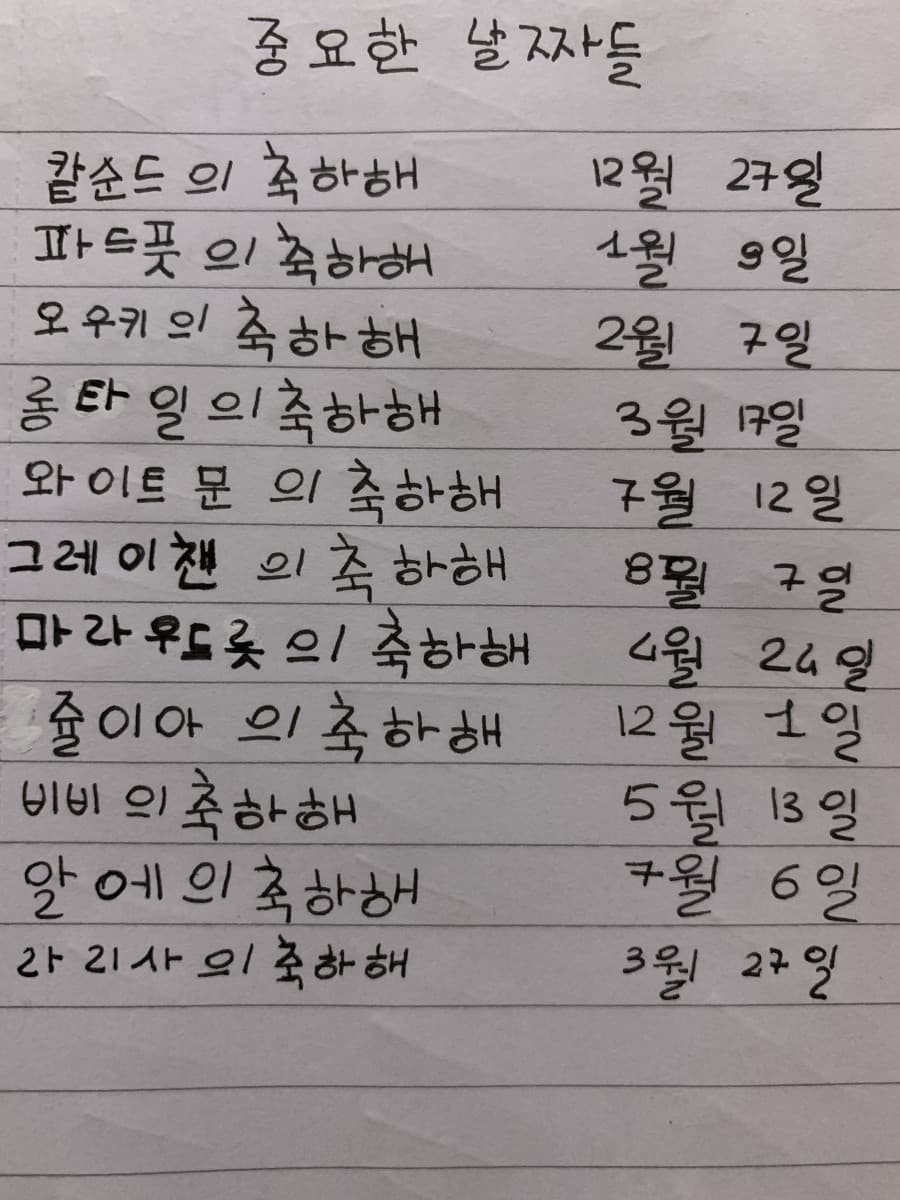 중요한 날짜들
캍순드의 축하해 12월 27일
파드풋의 축하해 1월 9일
오우키의 축하해 2월 7일
롱타일의 축하해 3월 17일
와이트 문의 축하해 7월 12일
그레이챈의 축하해 8월 7일
마라우드롯의 축하해 4월 24일
쥴이아의 축하해 12월 1일
비비의 축하해 5월 13일
알에의 축하해 7월 6일
라리사의 축하해 3월 27일